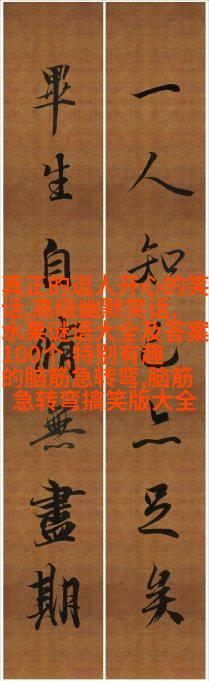 一人知己亦足矣
畢生自脩無盡期
真正的逗人开心的笑
话,高级幽默笑话,
水果谜语大全及答案
100个,特别有趣
的脑筋急转弯,脑筋
急转弯搞笑版大全